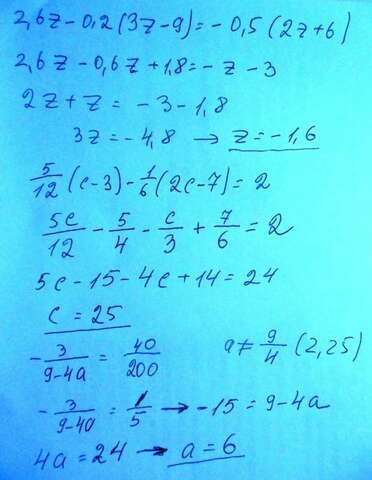 2,6z-0,2(3z-9)=-0,5(2z+6)
2,6z-0,6z+1,8=-z-3
2z+z=-3-1,8
3z=-4,8 → z=-1,6
5/12(c-3)-1/6(2c-7)=2
5c/12-5/4-c/3+7/6=2
5c-15-4c+14=24
c=25
-3/9-4a=40/200 a≠9/4(2,25)
-3/9-4a=1/5→-15=9-4a
4a=24→a=6